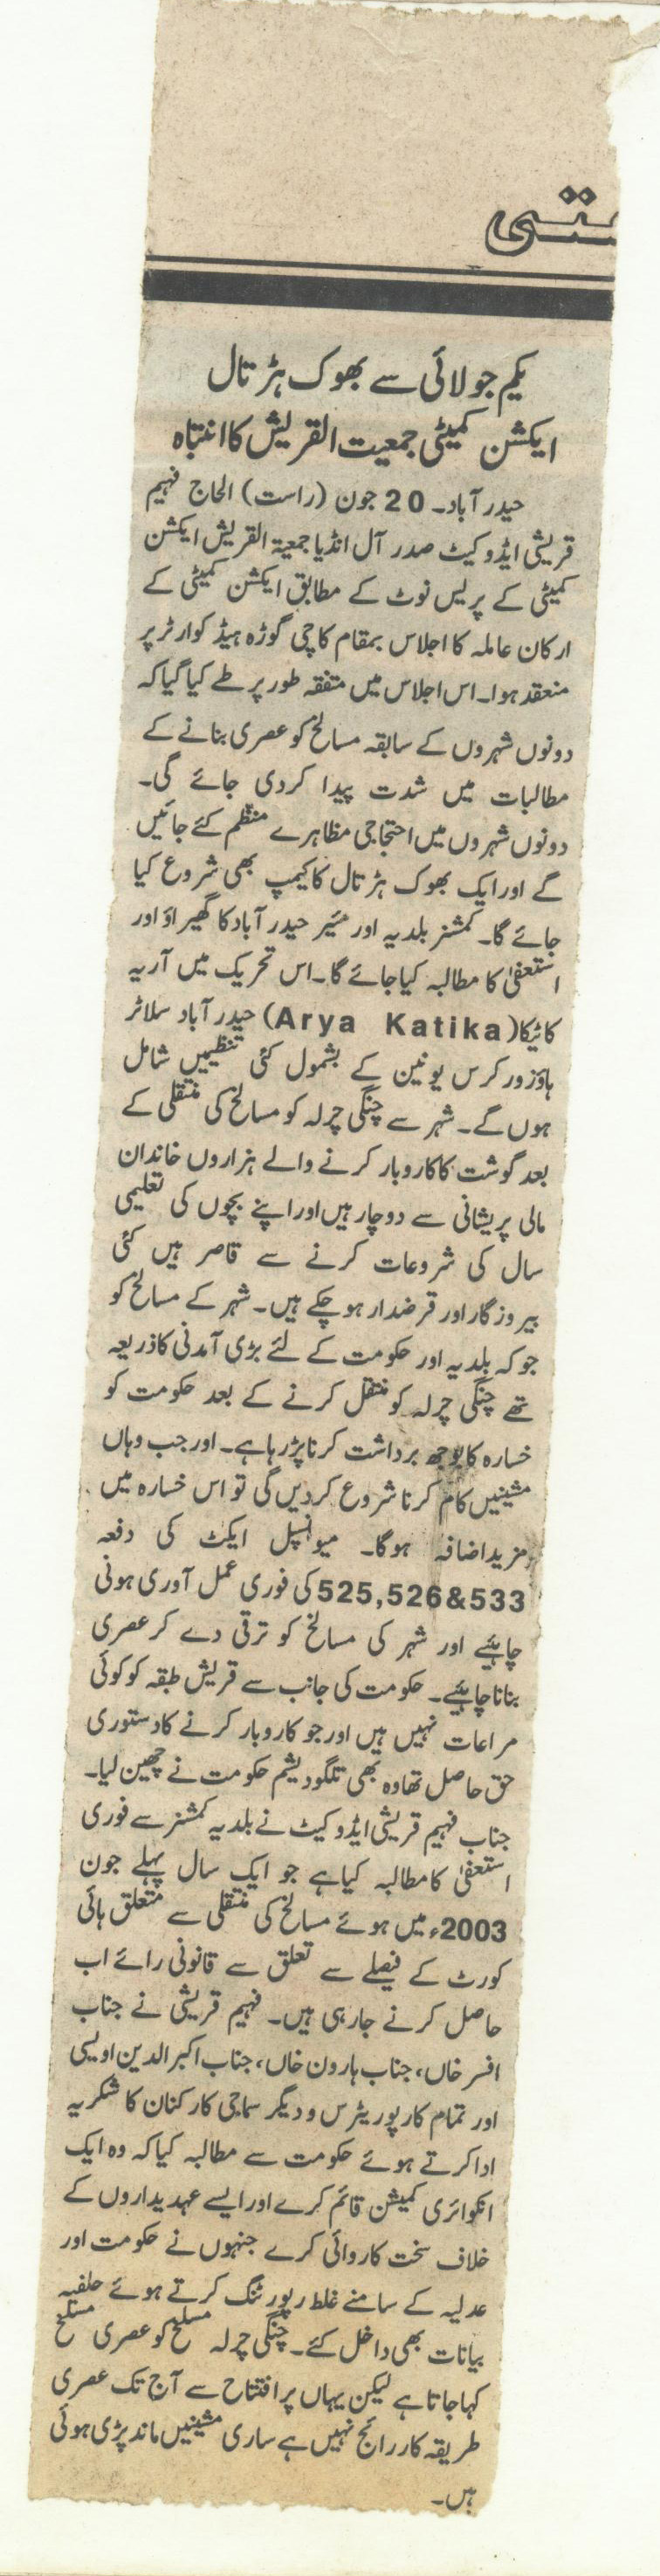 یکم جولائی سے بھوک ہڑتال
ایکشن کمیٹی جمعیت القریش کا انتباہ
حیدرآباد۔ 20 جون (راست) الحاج فہیم
قریشی ایڈوکیٹ صدر آل انڈیا جمعیۃ القریش ایکشن
کمیٹی کے پریس نوٹ کے مطابق ایکشن کمیٹی کے
ارکان عاملہ کا اجلاس بمقام کاچی گوڑہ ہیڈ کوارٹر پر
منعقد ہوا۔ اس اجلاس میں متفقہ طور پر طے کیا گیا کہ
دونوں شہروں کے سابقہ مسالخ کو عصری بنانے کے
مطالبات میں شدت پیدا کردی جائے گی۔
دونوں شہروں میں احتجاجی مظاہرے منظم کئے جائیں
گے اور ایک بھوک ہڑتال کا کیمپ بھی شروع کیا
جائے گا۔ کمشنر بلدیہ اور میئر حیدرآباد کا گھیراؤ اور
استعفیٰ کا مطالبہ کیا جائے گا۔ اس تحریک میں آریہ
کاٹیکا (Arya Katika) حیدرآباد سلاٹر
ہاؤز ورکرس یونین کے بشمول کئی تنظیمیں شامل
ہوں گے۔ شہر سے چنگی چرلہ کو مسالخ کی منتقلی کے
بعد گوشت کا کاروبار کرنے والے ہزاروں خاندان
مالی پریشانی سے دوچار ہیں اور اپنے بچوں کی تعلیمی
سال کی شروعات کرنے سے قاصر ہیں کئی
بیروزگار اور قرضدار ہوچکے ہیں۔ شہر کے مسالخ کو
جو کہ بلدیہ اور حکومت کے لئے بڑی آمدنی کا ذریعہ
تھے چنگی چرلہ کو منتقل کرنے کے بعد حکومت کو
خسارہ کا بوجھ برداشت کرنا پڑ رہا ہے۔ اور جب وہاں
مشینیں کام کرنا شروع کردیں گی تو اس خسارہ میں
مزید اضافہ ہوگا۔ میونسپل ایکٹ کی دفعہ
525,526&533 کی فوری عمل آوری ہونی
چاہیئے اور شہر کی مسالخ کو ترقی دے کر عصری
بنانا چاہیئے۔ حکومت کی جانب سے قریش طبقہ کو کوئی
مراعات نہیں ہیں اور جو کاروبار کرنے کا دستوری
حق حاصل تھا وہ بھی تلگودیشم حکومت نے چھین لیا۔
جناب فہیم قریشی ایڈوکیٹ نے بلدیہ کمشنر سے فوری
استعفیٰ کا مطالبہ کیا ہے جو ایک سال پہلے جون
2003ء میں ہوئے مسالخ کی منتقلی سے متعلق ہائی
کورٹ کے فیصلے سے تعلق سے قانونی رائے اب
حاصل کرنے جارہی ہیں۔ فہیم قریشی نے جناب
افسر خاں، جناب ہارون خاں، جناب اکبرالدین اویسی
اور تمام کارپوریٹرس و دیگر سماجی کارکنان کا شکریہ
ادا کرتے ہوئے حکومت سے مطالبہ کیا کہ وہ ایک
انکوائری کمیشن قائم کرے اور ایسے عہدیداروں کے
خلاف سخت کاروائی کرے جنہوں نے حکومت اور
عدلیہ کے سامنے غلط رپورٹنگ کرتے ہوئے حلفیہ
بیانات بھی داخل کئے۔ چنگی چرلہ مسلخ کو عصری مسلخ
کہا جاتا ہے لیکن یہاں پر افتتاح سے آج تک عصری
طریقہ کار رائج نہیں ہے ساری مشینیں ماند پڑی ہوئی
ہیں۔